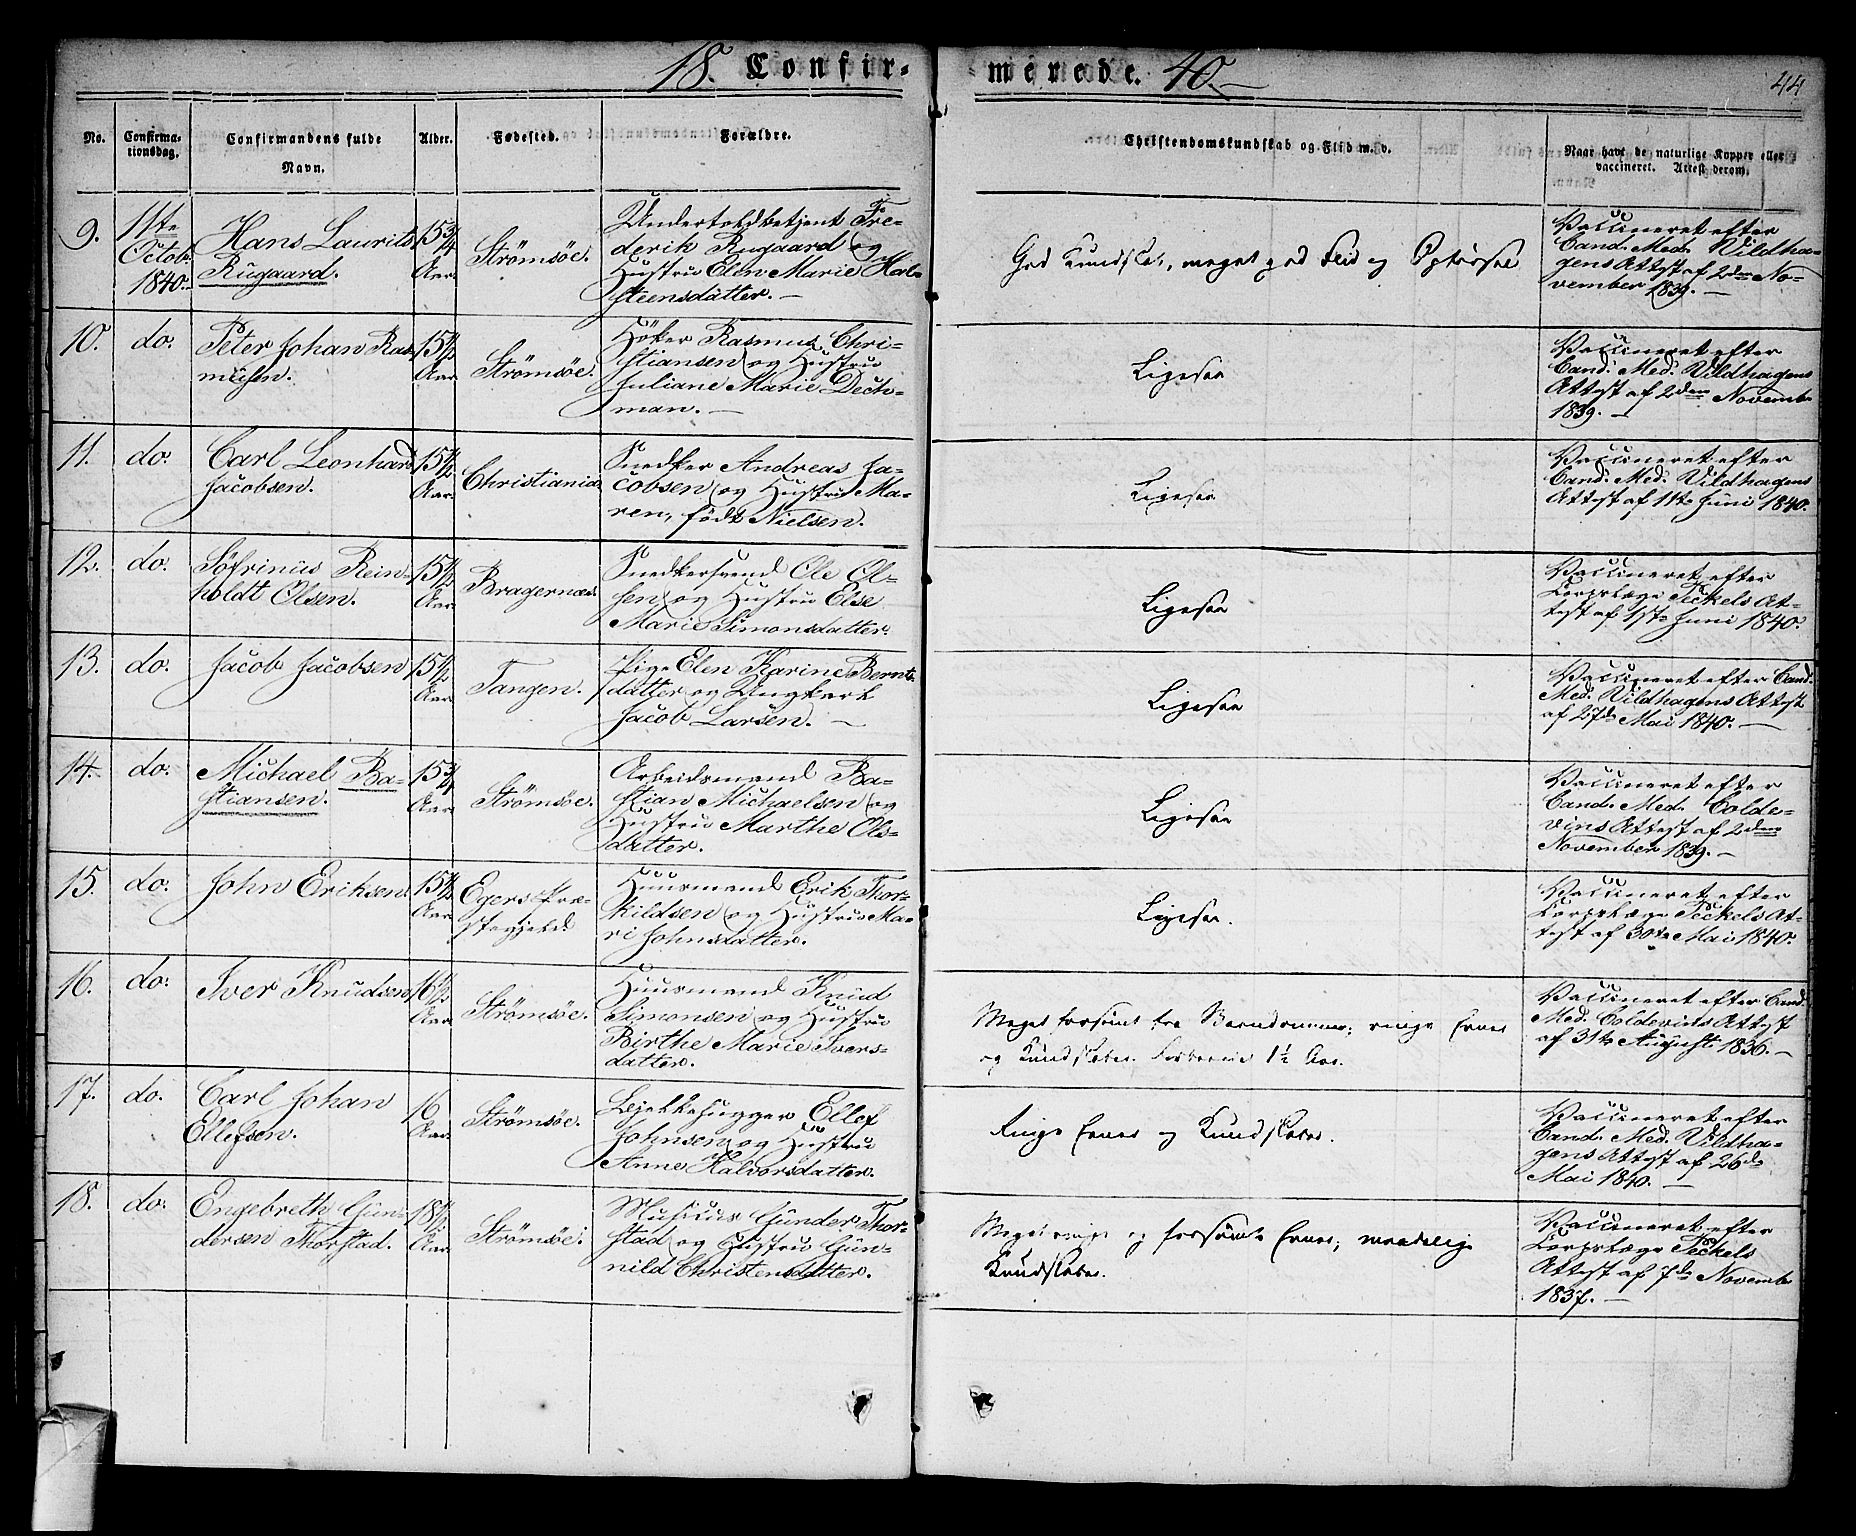 18 Confir-
merede. 40.
44
No.
Confirma-
tionsdag.
Confirmandens fulde
Navn.
Alder.
Fødested.
Forældre.
Christendomskundskab og Flid m. v.
Naar havt de naturlige Kopper eller
vaccineret. Attest derom.
9.
11te
Octob.
1840.
Hans Laurits
Rugaard.
15 3/4
Aar.
Strømsøe.
Undertoldbetjent Fre-
derik Rugaard og
Hustru Elen Marie Hal-
steensdatter.
God Kundskab, meget god Flid og Opførsel
Vaccineret efter
Cand. Med. Vildha-
gens Attest af 2den No-
vember 1839.
10.
do.
Peter Johan Ras-
musen.
15 1/2
Aar
Strømsøe.
Høker Rasmus Chri-
stiansen og Hustru
Juliane Marie Dech-
man.
Ligesaa
Vaccineret efter
Cand. Med. Vildhagens
Attest af 2den Novemb.
1839.
11.
do.
Carl Leonhard
Jacobsen.
15 1/2
Aar.
Christiania
Snedker Andreas Ja-
cobsen og Hustru Ma-
ren, født Nielsen.
Ligesaa
Vaccineret efter
Cand. Med. Vildhagens
Attest af 11te Juni 1840.
12.
do.
Søfrinus Rein-
holdt Olsen.
15 1/2
Aar.
Bragernæs.
Snedkersvend Ole Ol-
sen og Hustru Else
Marie Simonsdatter.
Ligesaa
Vaccineret efter
Corpslæge Teckels At-
test af 1ste Juni 1840.
13.
do.
Jacob Jacobsen
15 1/2
Aar.
Tangen.
Pige Elen Karine Bernts-
datter og Ungkarl
Jacob Larsen.
Ligesaa
Vaccineret efter Cand.
Med. Vildhagens Attest
af 27de Mai 1840.
14.
do.
Michael Ba-
stiansen.
15 3/4
Aar.
Strømsøe.
Arbeidsmand Ba-
stian Michaelsen og
Hustru Marthe Ols-
datter.
Ligesaa
Vaccineret efter
Cand. Med. Colde-
vins Attest af 2den
November 1839.
15.
do.
John Eriksen
15 1/2
Aar.
Egers Præ-
stegjeld.
Huusmand Erik Thor-
kildsen og Hustru Ma-
ri Johnsdatter.
Ligesaa.
Vaccineret efter
Corpslæge Teckels At-
test af 30te Mai 1840.
16.
do.
Iver Knudsen
16 1/2
Aar.
Strømsøe.
Huusmand Knud
Simonsen og Hustru
Birthe Marie Ivers-
datter.
Meget forsømt fra Barndommen; ringe Evner
og Kundskaber. 1 1/2 Aar.
Vaccineret efter Cand.
Med. Coldevins Attest
af 31te August 1836.
17.
do.
Carl Johan
Ellefsen.
16
Aar.
Strømsøe.
Ellef
Johnsen og Hustru
Anne Halvorsdatter.
Ringe Evner og Kundskaber.
Vaccineret efter
Cand. Med. Vildha-
gens Attest af 26de
Mai 1840.
18.
do.
Engebreth Gun-
dersen Thorstad.
18 1/2
Aar.
Strømsøe.
Musicus Gunder Thor-
stad og Hustru Gun-
nild Christensdatter.
Meget ringe og forsømte Evner; maadelige
Kundskaber.
Vaccineret efter
Corpslæge Teckels
Attest af 7de Novemb.
1837.